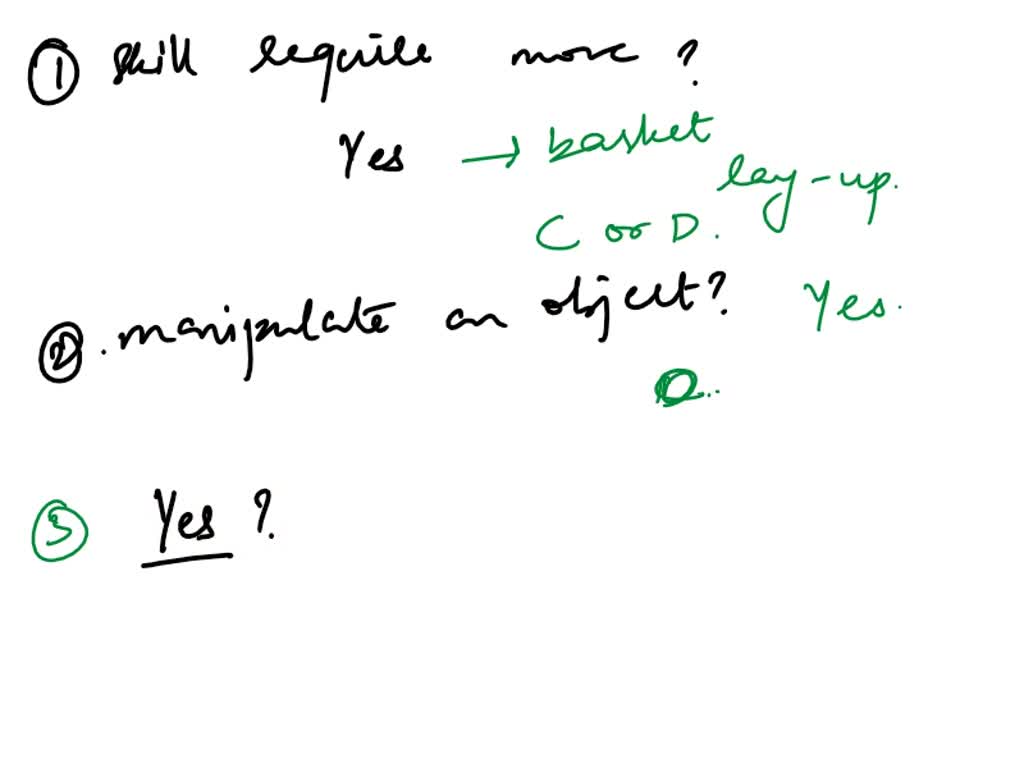 ① skill require move ?
Yes → basket
lay-up.
C or D.
② . manipulate an object? Yes.
③ Yes ?